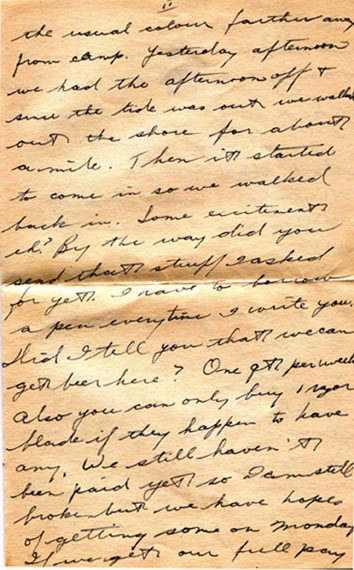 11
the usual colour farther away
from camp. Yesterday afternoon
we had the afternoon off &
since the tide was out we walked
out the shore for about
a mile. Then it started
to come in so we walked
back in. Some excitement
eh? By the way did you
send that stuff I asked
for yet. I have to borrow
a pen everytime I write you.
Did I tell you that we can
get beer here? One qt. per week
Also you can only buy 1 razor
blade if they happen to have
any. We still haven't
been paid yet so I am still
broke but we have hopes
of getting some on Monday
If we get our full pay